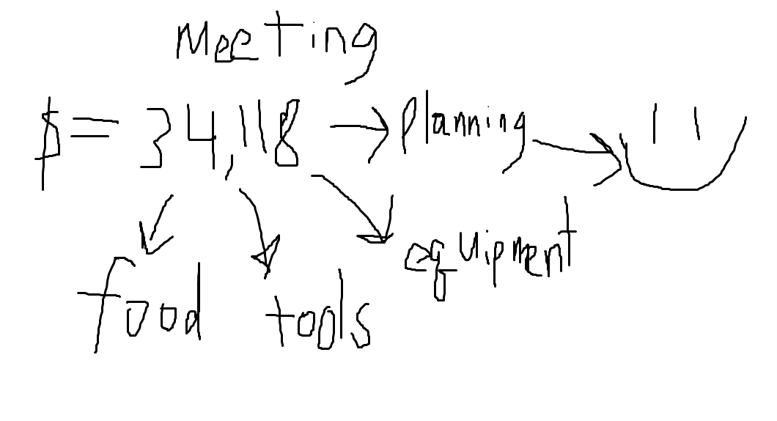 Meeting
$= 34,118 → planning →
food tools equipment